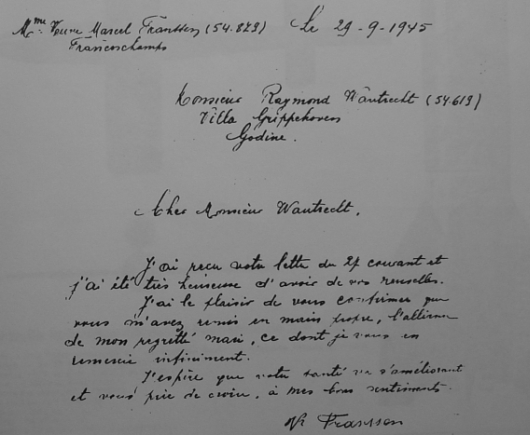 Mme Veuve Marcel Franssen (54.873) Le 29-9-1945
Francorchamps
Monsieur Raymond Wautrecht (54.613)
Villa Grippehoven
Godine.
Cher Monsieur Wautrecht,
J'ai reçu votre lettre du 27 courant et
j'ai été très heureuse d'avoir de vos nouvelles.
J'ai le plaisir de vous confirmer que
vous m'avez remis en main propre, l'alliance
de mon regretté mari, ce dont je vous en
remercie infiniment.
J'espère que votre santé va s'améliorant
et vous prie de croire, à mes bons sentiments.
Franssen